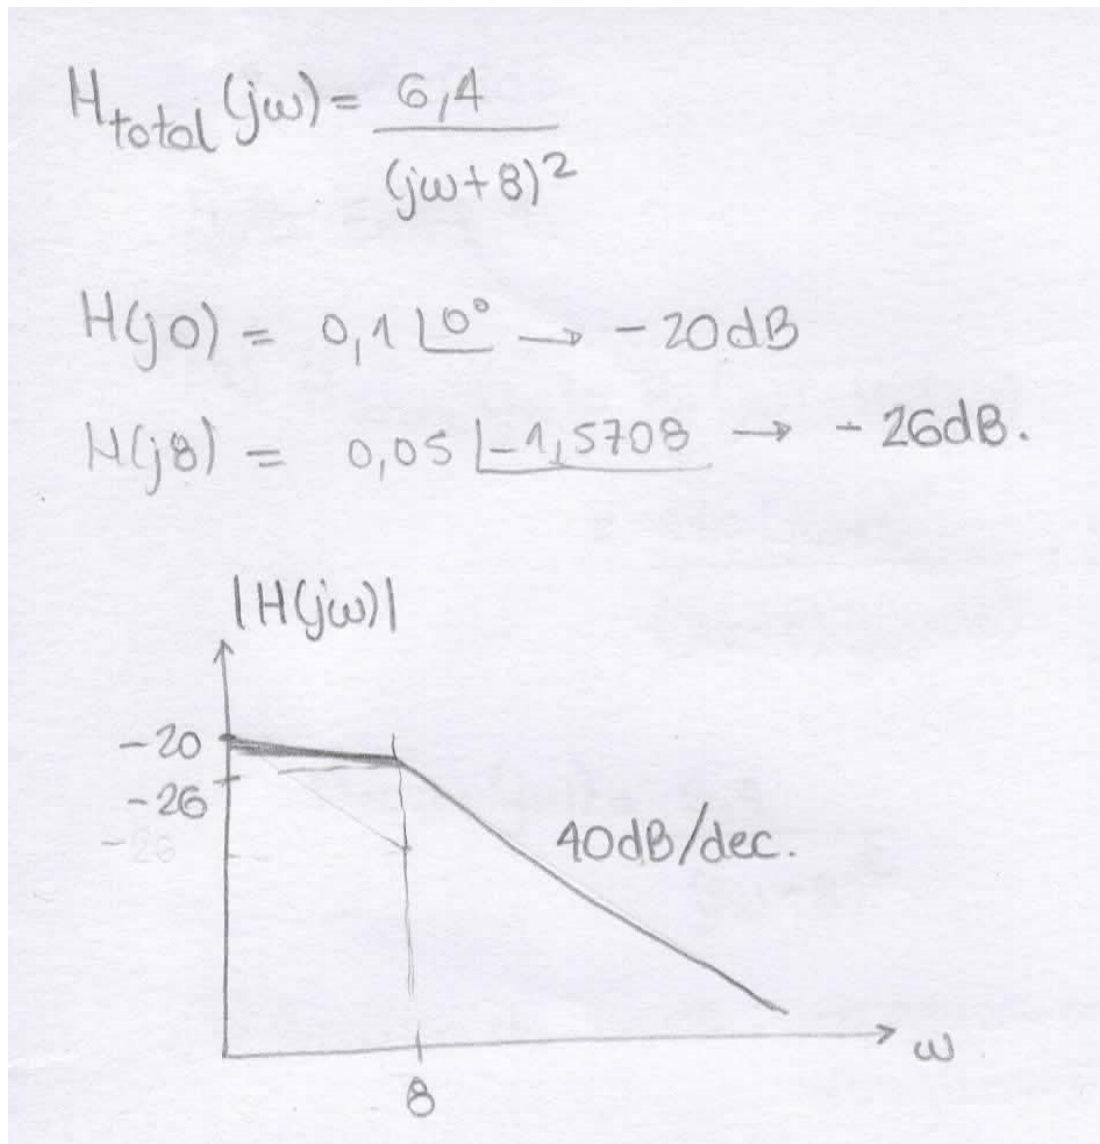 H_total (jω) = 6,4 / (jω+8)²
H(j0) = 0,1 ∟0° → -20dB
H(j8) = 0,05 ∟-1,5708 → -26dB.
|H(jω)|
-20
-26
40dB/dec.
ω
8